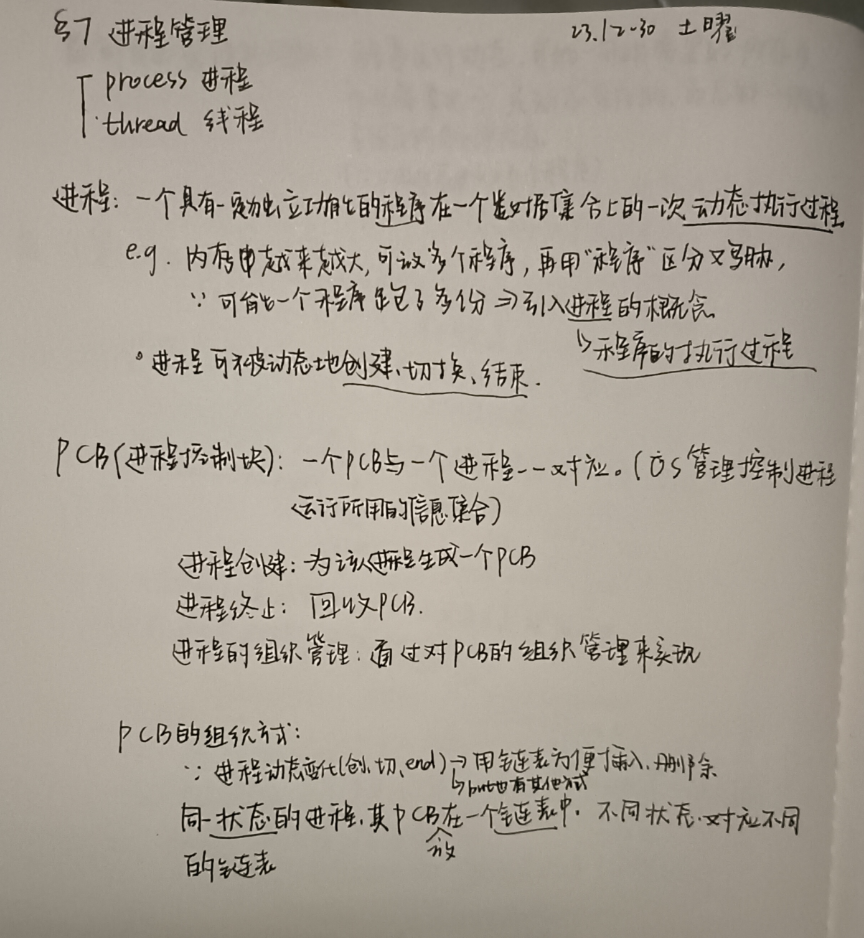 §7 进程管理 23.12-30 土曜
process 进程
thread 线程
进程：一个具有一定独立功能的程序在一个数据集合上的一次动态执行过程
e.g. 内存越来越大，可放多个程序，再用"程序"区分又
∵ 可能一个程序跑了多份 ⇒ 引入进程的概念
↳ 程序的执行过程
∘ 进程可被动态地创建、切换、结束.
PCB(进程控制块)：一个PCB与一个进程一一对应。(OS管理控制进程
运行所用的信息集合)
进程创建：为该进程生成一个PCB
进程终止：回收PCB.
进程的组织管理：通过对PCB的组织管理来实现
PCB的组织方式：
∵ 进程动态变化(创、切、end) → 用链表方便插入、删除
↳ but也有其他方式
同一状态的进程，其PCB放在一个链表中，不同状态对应不同
的链表